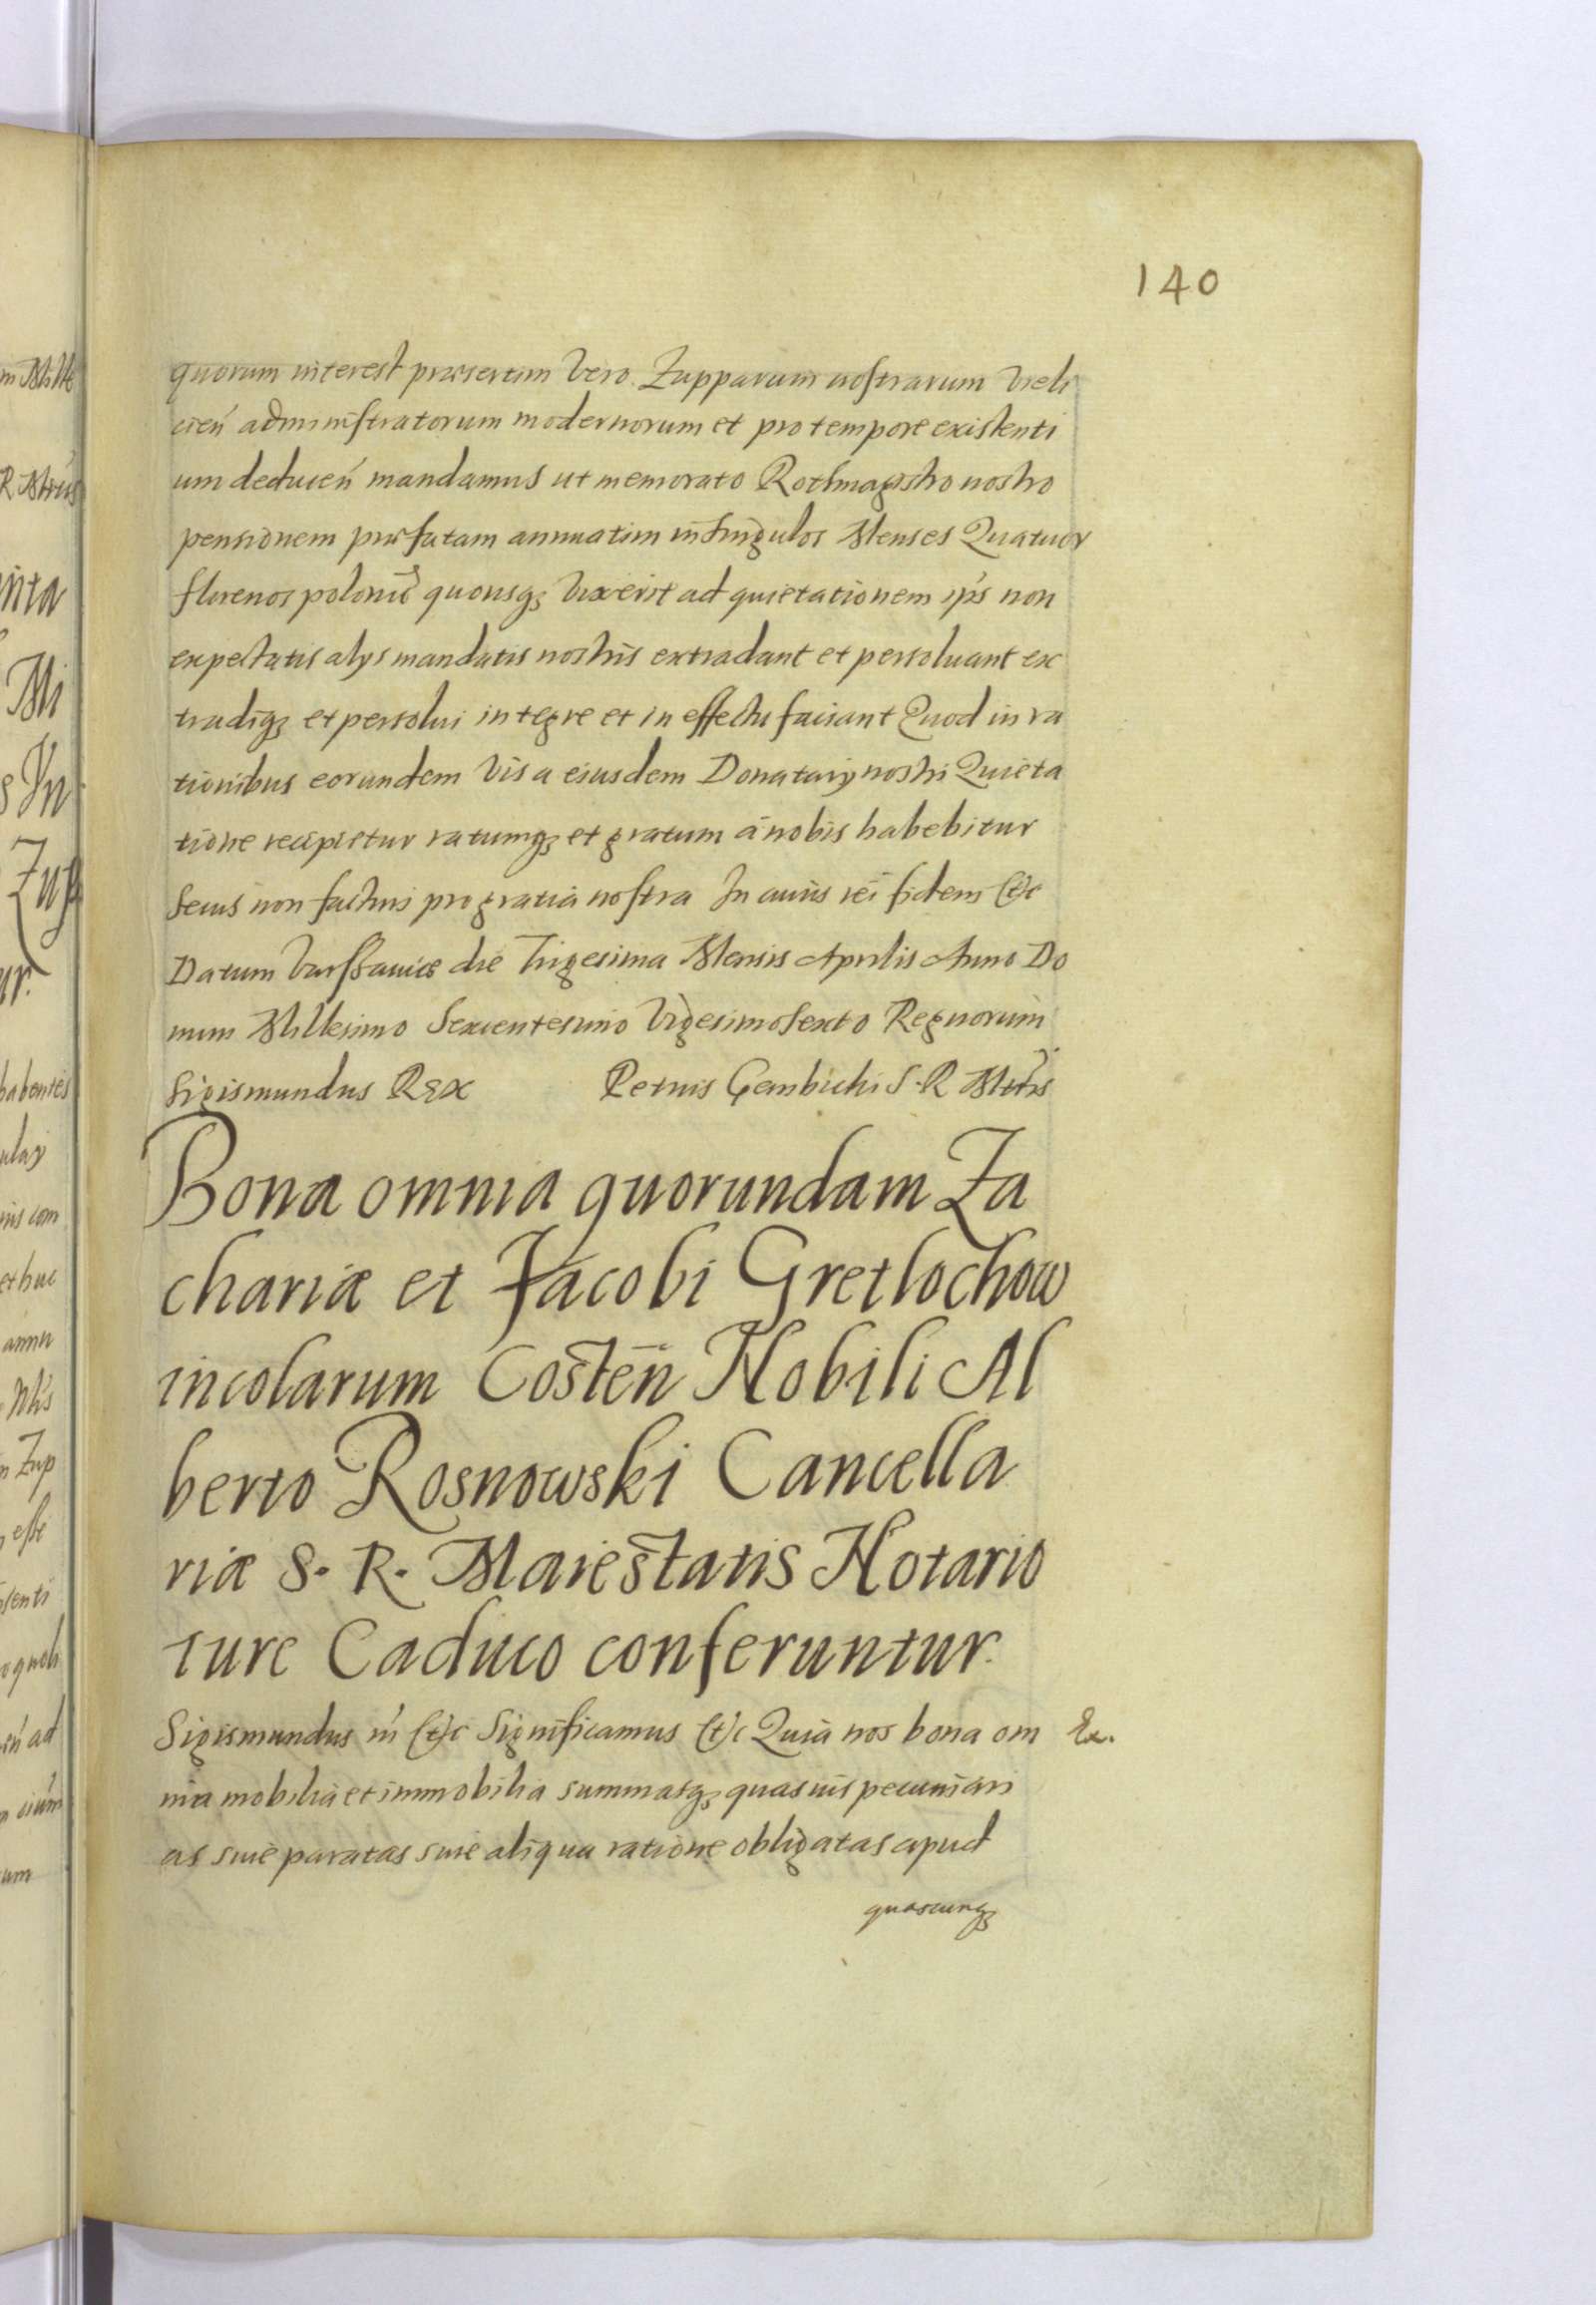 140
quorum interest præsertim vero Zupparum nostrarum Vieli
cień administratorum modernorum et pro tempore existenti
um deducen̄ mandamus ut memorato Rothmagistro nostro
pensionem præfatam annuatim in singulos Menses Quatuor
florenos polon̄ quousq3 vixerit ad quietationem ip̄s non
expectatis alys mandatis nostris extradant et persoluant ex
tradiq3 et persolui integre et in effectu faciant Quod in ra
tionibus eorundem visa eiusdem Donatarij nostri Quieta
tione recipietur ratumq3 et gratum à nobis habebitur
Secus non facturi pro gratia nostra In cuius rei fidem etc
Datum Varssauiæ die Trigesima Mensis Aprilis Anno Do
mini Millesimo Sexcentesimo Vigesimo sexto Regnorum
Sigismundus Rex Petrus Gembicki S. R. Mttis
Bona omnia quorundam Za
chariæ et Jacobi Gretlochow
incolarum Costen̄ Nobili Al
berto Rosnowski Cancella
riæ S. R. Maiestatis Notario
iure Caduco conferuntur.
Sigismundus III etc Significamus etc Quia nos bona om
Ex.
nia mobilia et immobilia summasq3 quasuis pecuniari
as siue paratas siue aliqua ratione obligatas apud
quoscunq3